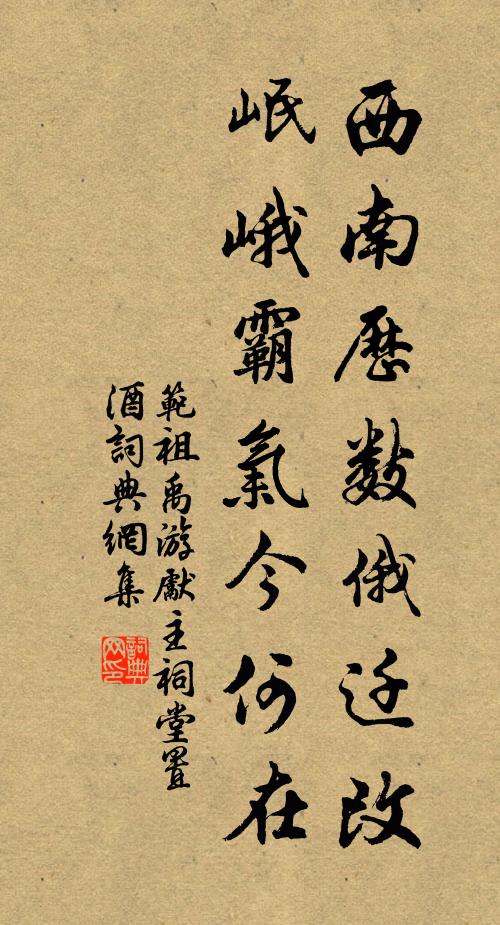 西南歷数俄迁改
岷峨霸氣今何在
範祖禹游獻主祠堂置
酒詞典網集
詞典
网印